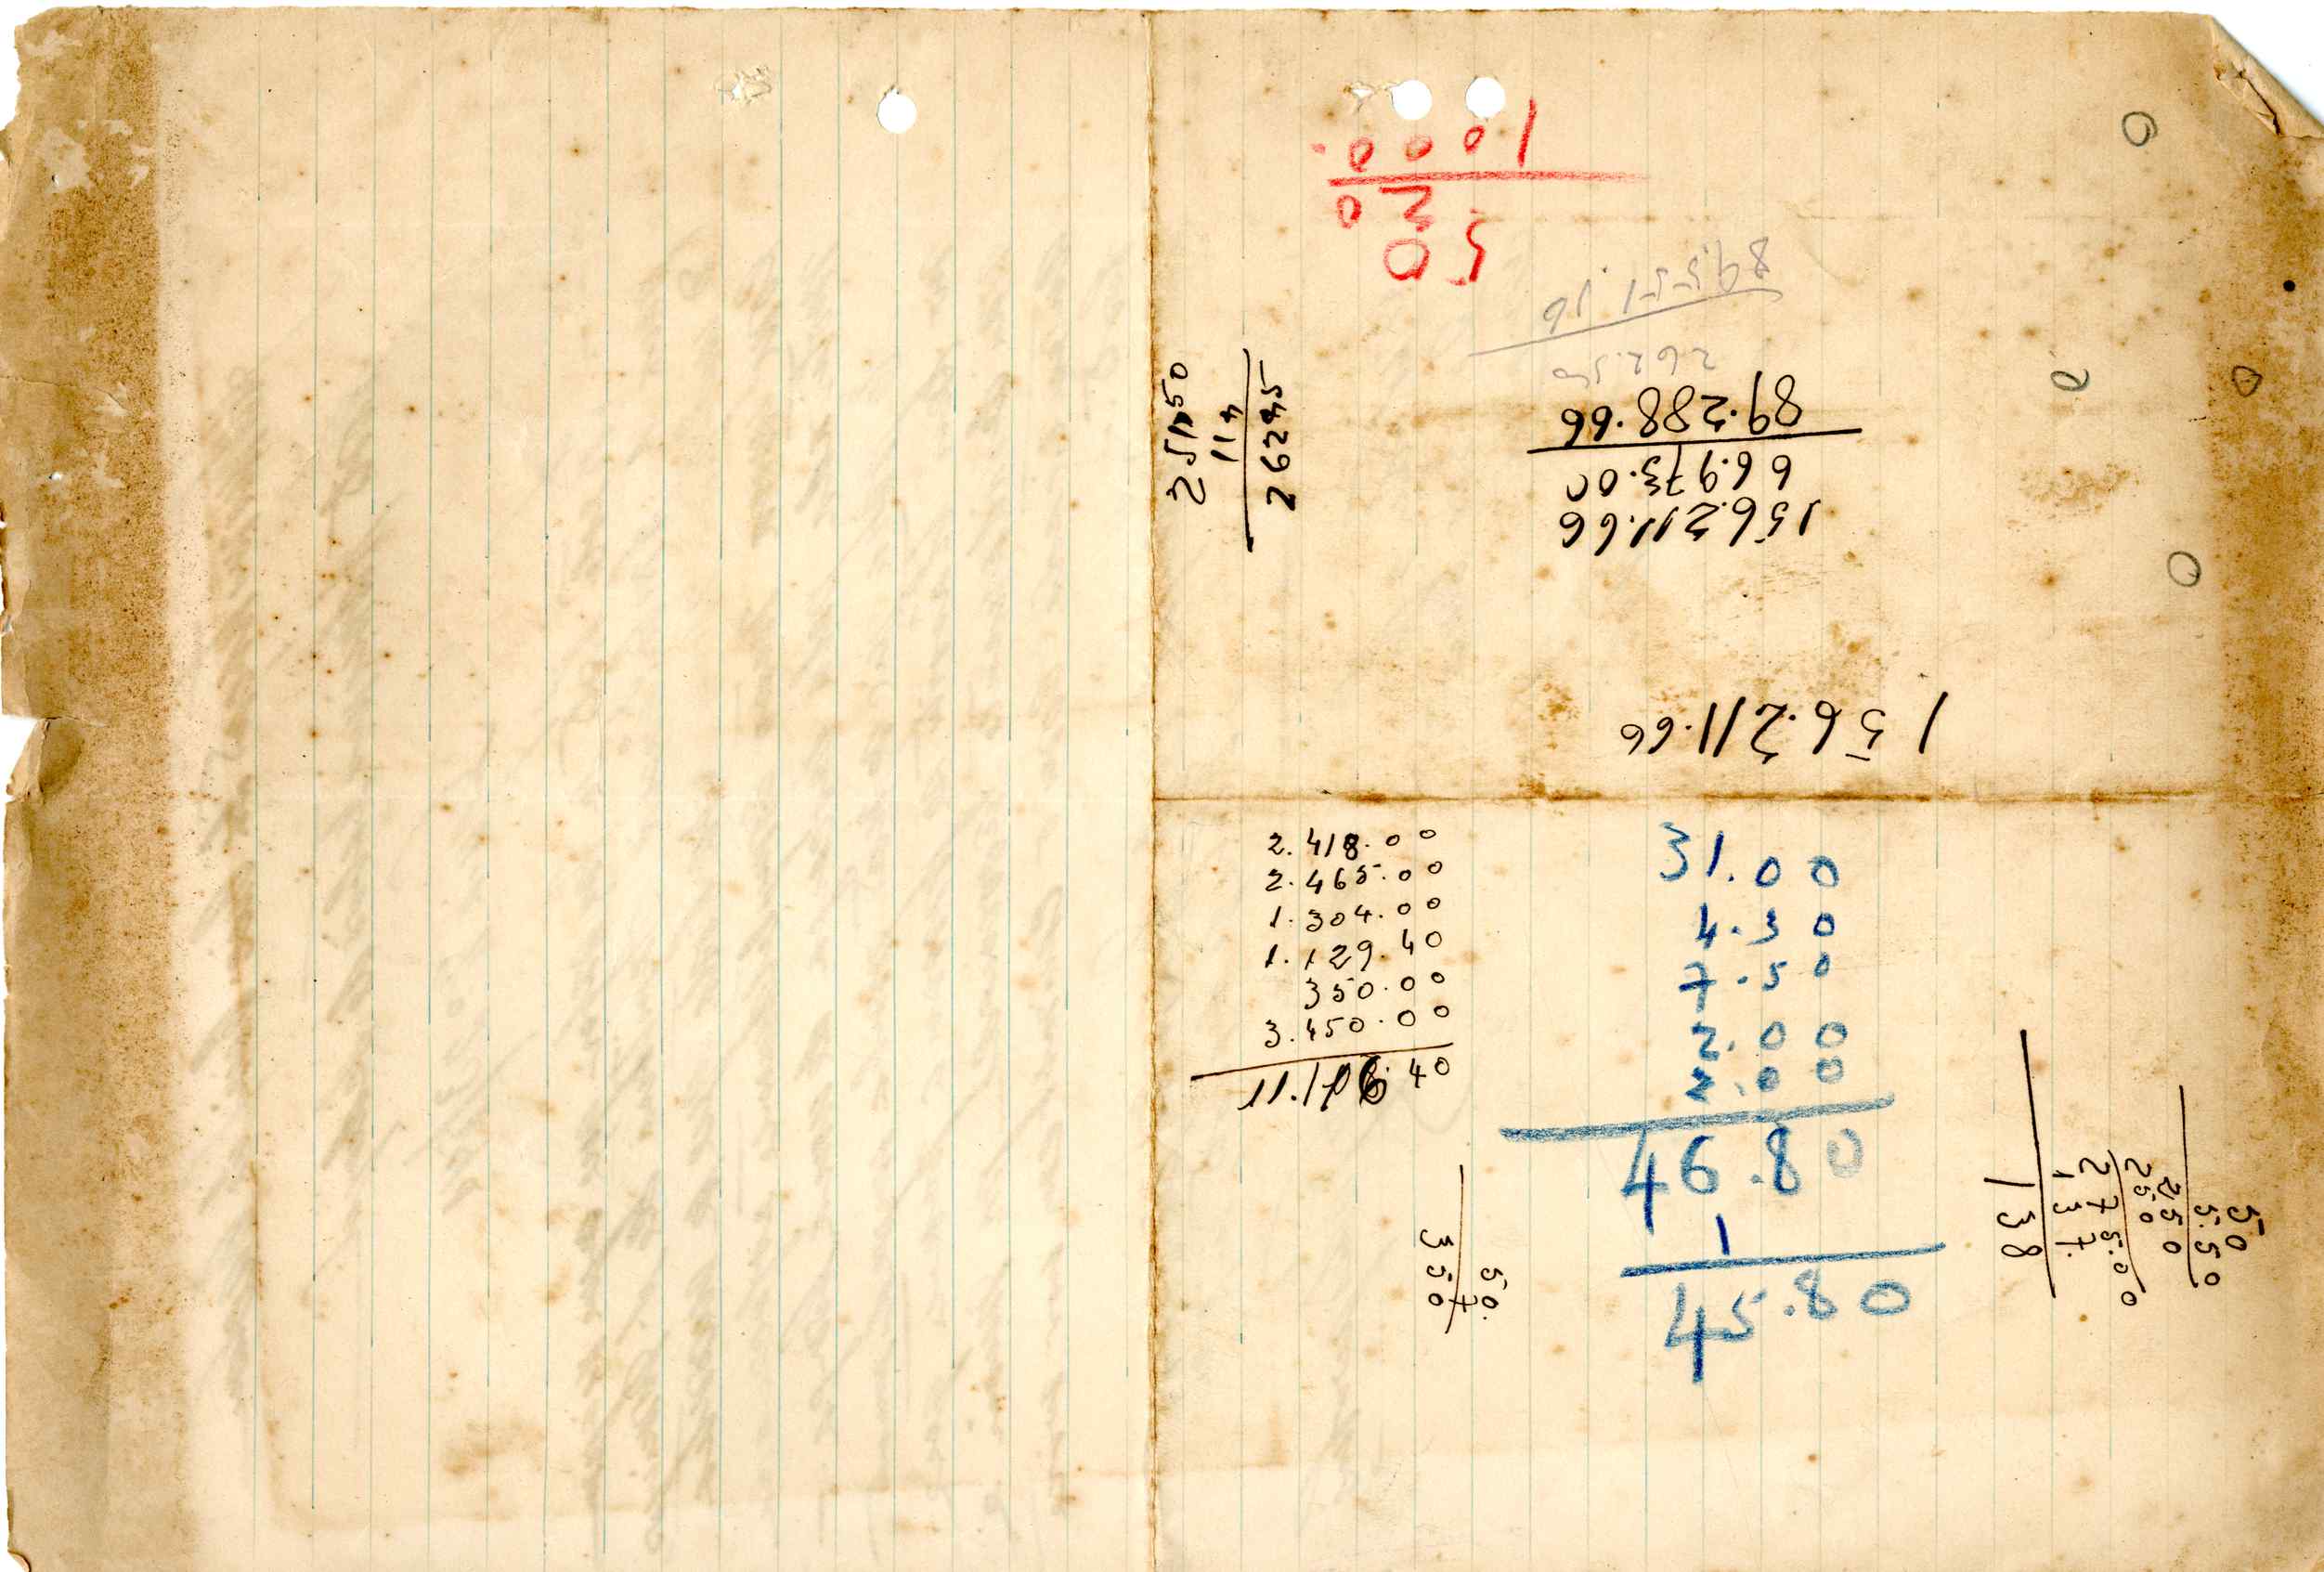 50
20
1.000.
156.211.66
66.973.00
89.288.66
262.50
89.551.16
114
26245
156.211.66
2.418.00
2.465.00
1.304.00
1.129.40
350.00
3.450.00
31.00
4.30
7.50
2.00
2.00
46.80
1
45.80
50.
7
350
50
5.50
250
250
275.00
137.
138